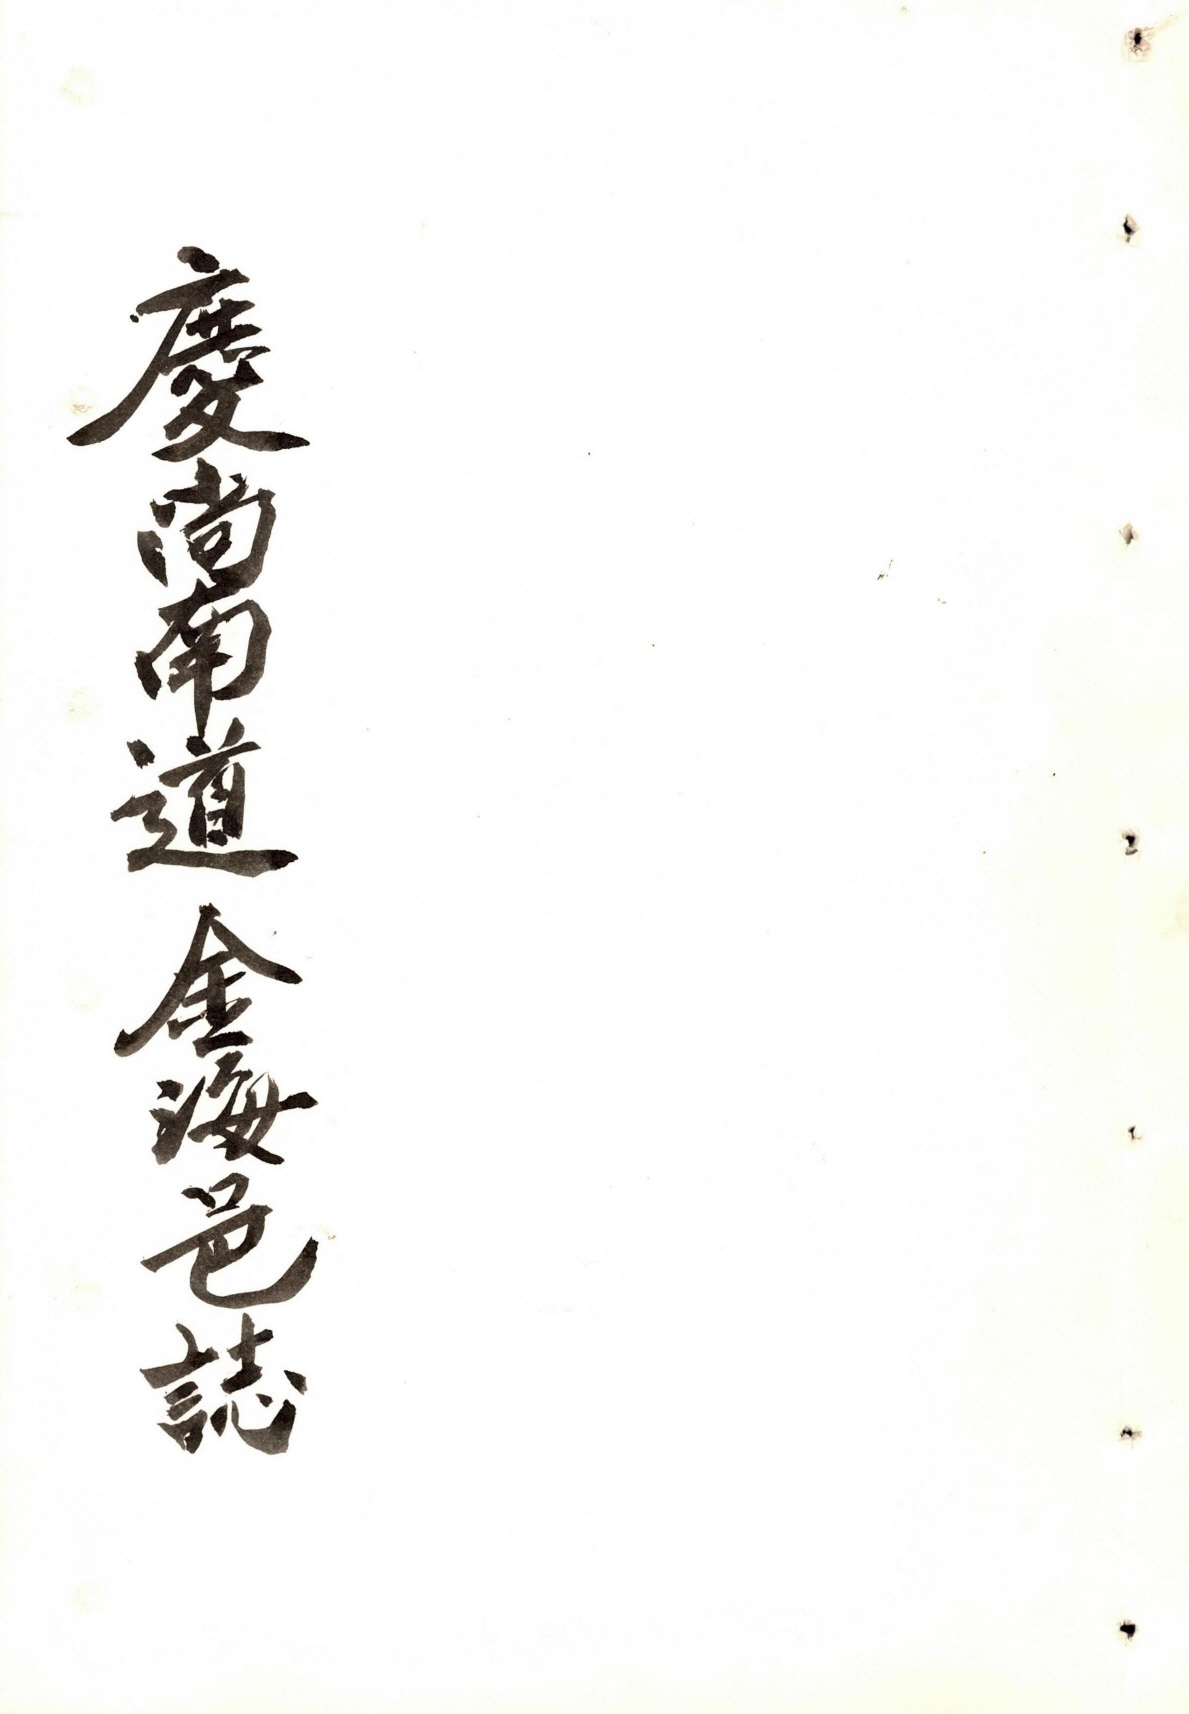 慶尚南道 金海邑誌